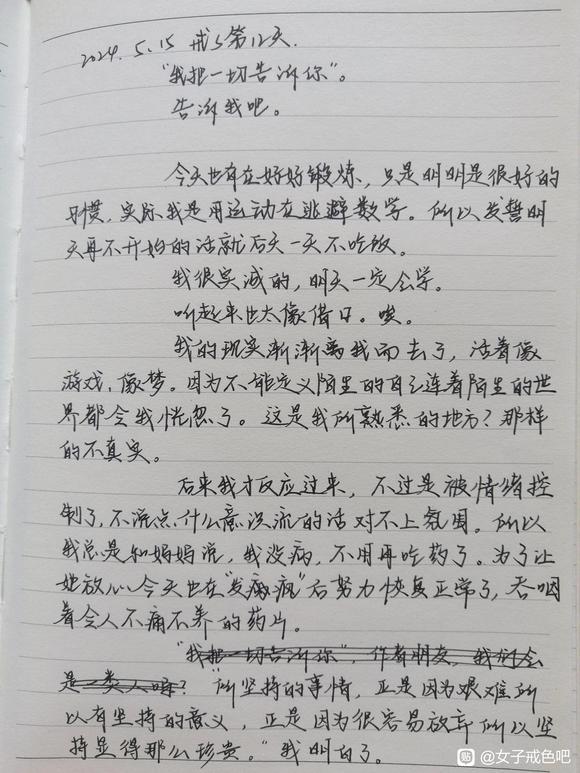 2024.5.15 戒s第12天.
"我把一切告诉你"。
告诉我吧。
今天也有在好好锻炼，只是明明是很好的
习惯，实际我是用运动在逃避数学。所以发誓明
天再不开始的话就后天一天不吃饭。
我很实诚的，明天一定会学。
听起来也太像借口。唉。
我的现实渐渐离我而去了，活着像
游戏，像梦。因为不能定义陌生的自己连着陌生的世
界都令我恍忽了。这是我所熟悉的地方？那样
的不真实。
后来我才反应过来，不过是被情绪控
制了，不说点什么意识流的话对不上氛围。所以
我总是和妈妈说，我没病，不用再吃药了。为了让
她放心今天也在"发病疯"后努力恢复正常了，吞咽
着令人不痛不养的药片。
"我把一切告诉你"，作者朋友，我们会
是一类人吗？"所坚持的事情，正是因为艰难所
以有坚持的意义，正是因为很容易放弃所以坚
持显得那么珍贵。"我明白了。
贴 @女子戒色吧